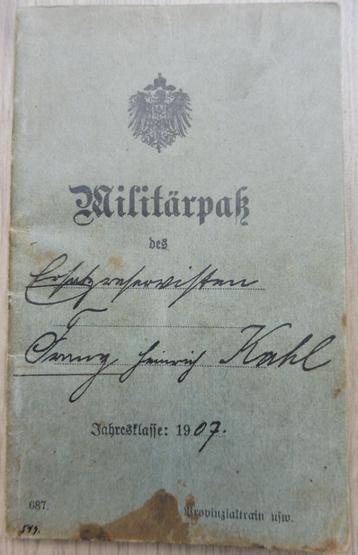 Militärpaß
des
Ersatzreservisten
Franz Heinrich Kahl
Jahresklasse: 1907.
687.
Provinzialtrain usw.